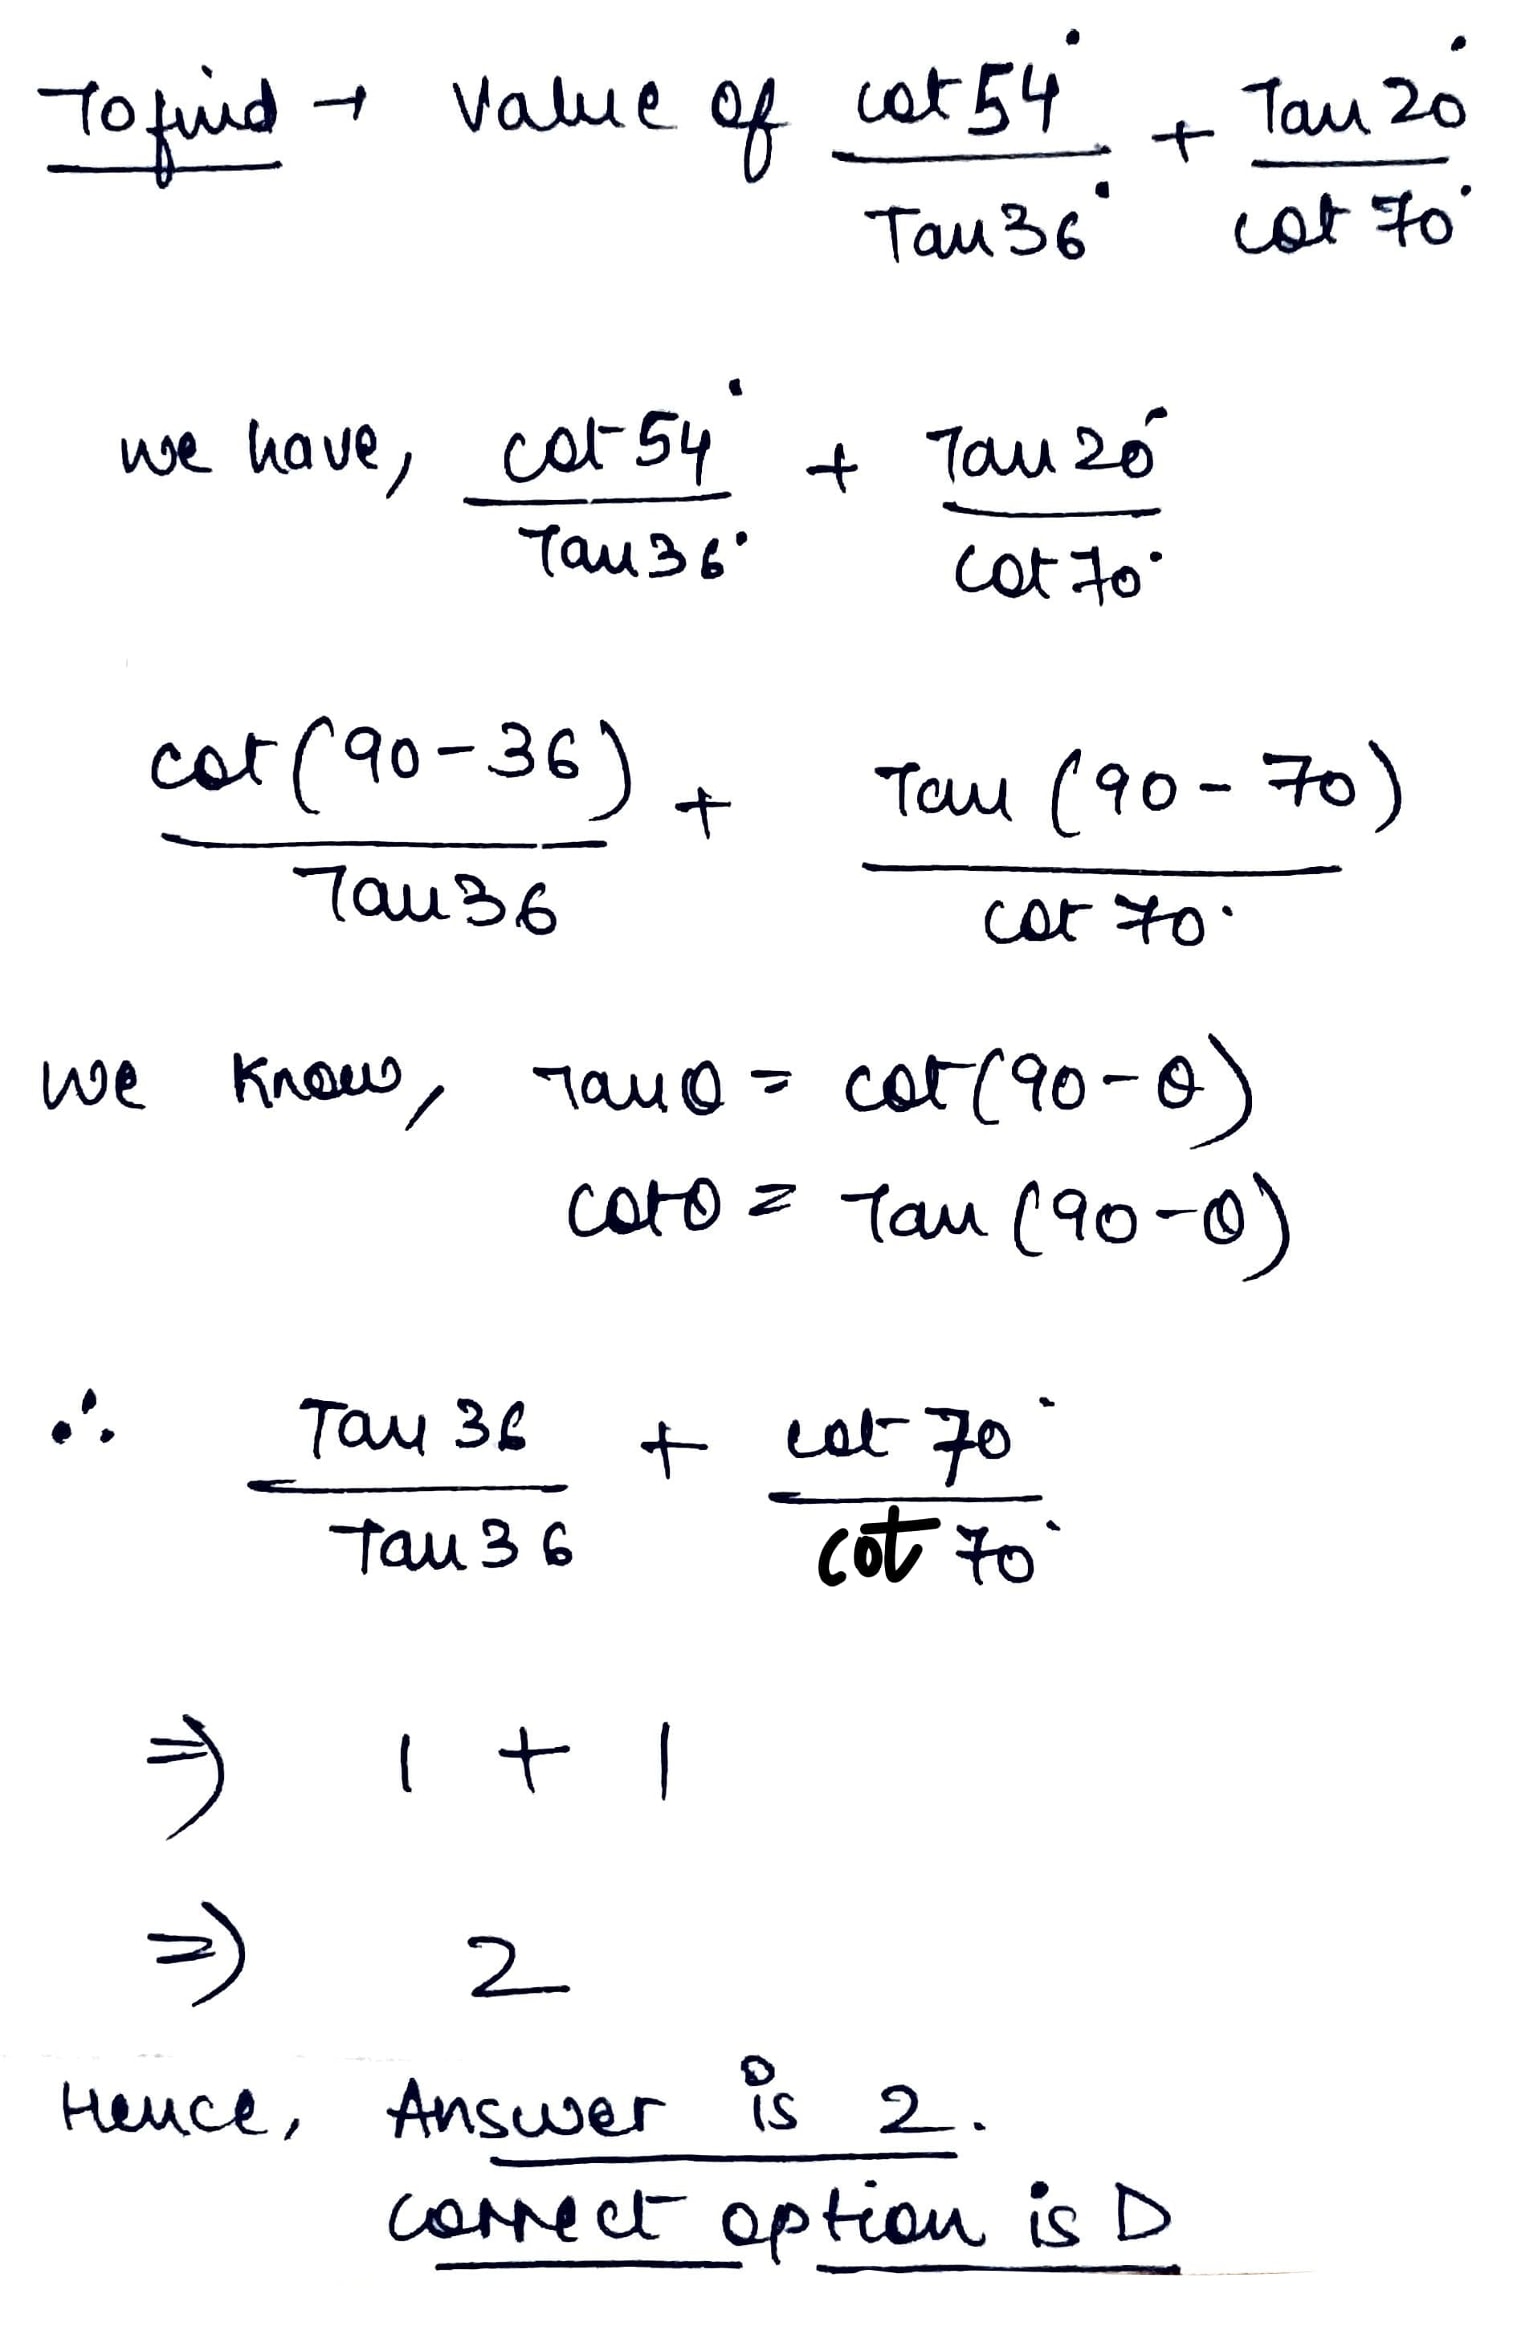 To find → Value of cot 54° / Tan 36° + Tan 20° / cot 70°
we have, cot 54° / Tan 36° + Tan 20° / cot 70°
cot (90-36) / Tan 36 + Tan (90-70) / cot 70°
we know, Tan θ = cot (90-θ)
cot θ = Tan (90-θ)
∴ Tan 36 / Tan 36 + cot 70° / cot 70°
⇒ 1 + 1
⇒ 2
Hence, Answer is 2.
correct option is D